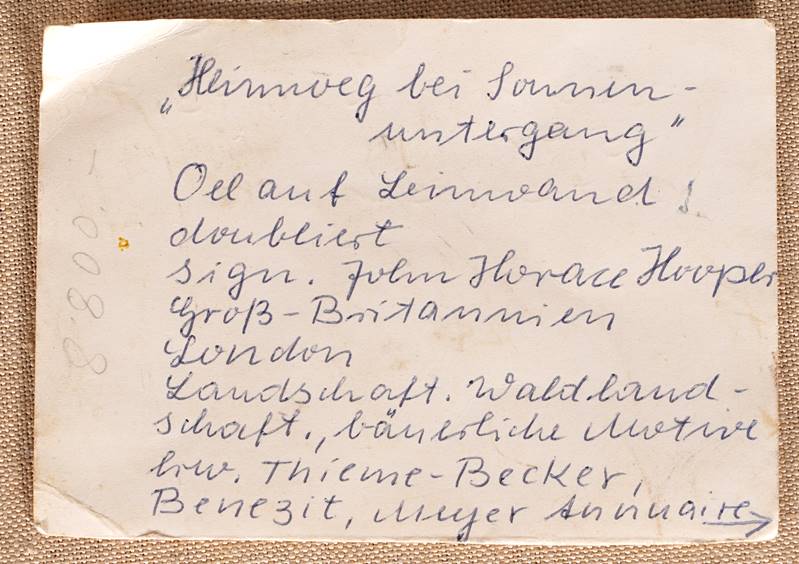 „Heimweg bei Sonnen-
untergang"
Oel auf Leinwand
doubliert
sign. John Horace Hooper
Groß-Britannien
London
Landschaft. Waldland-
schaft., bäuerliche Motive
Thieme-Becker,
Benezit, Meyer Annuaire
8800.-